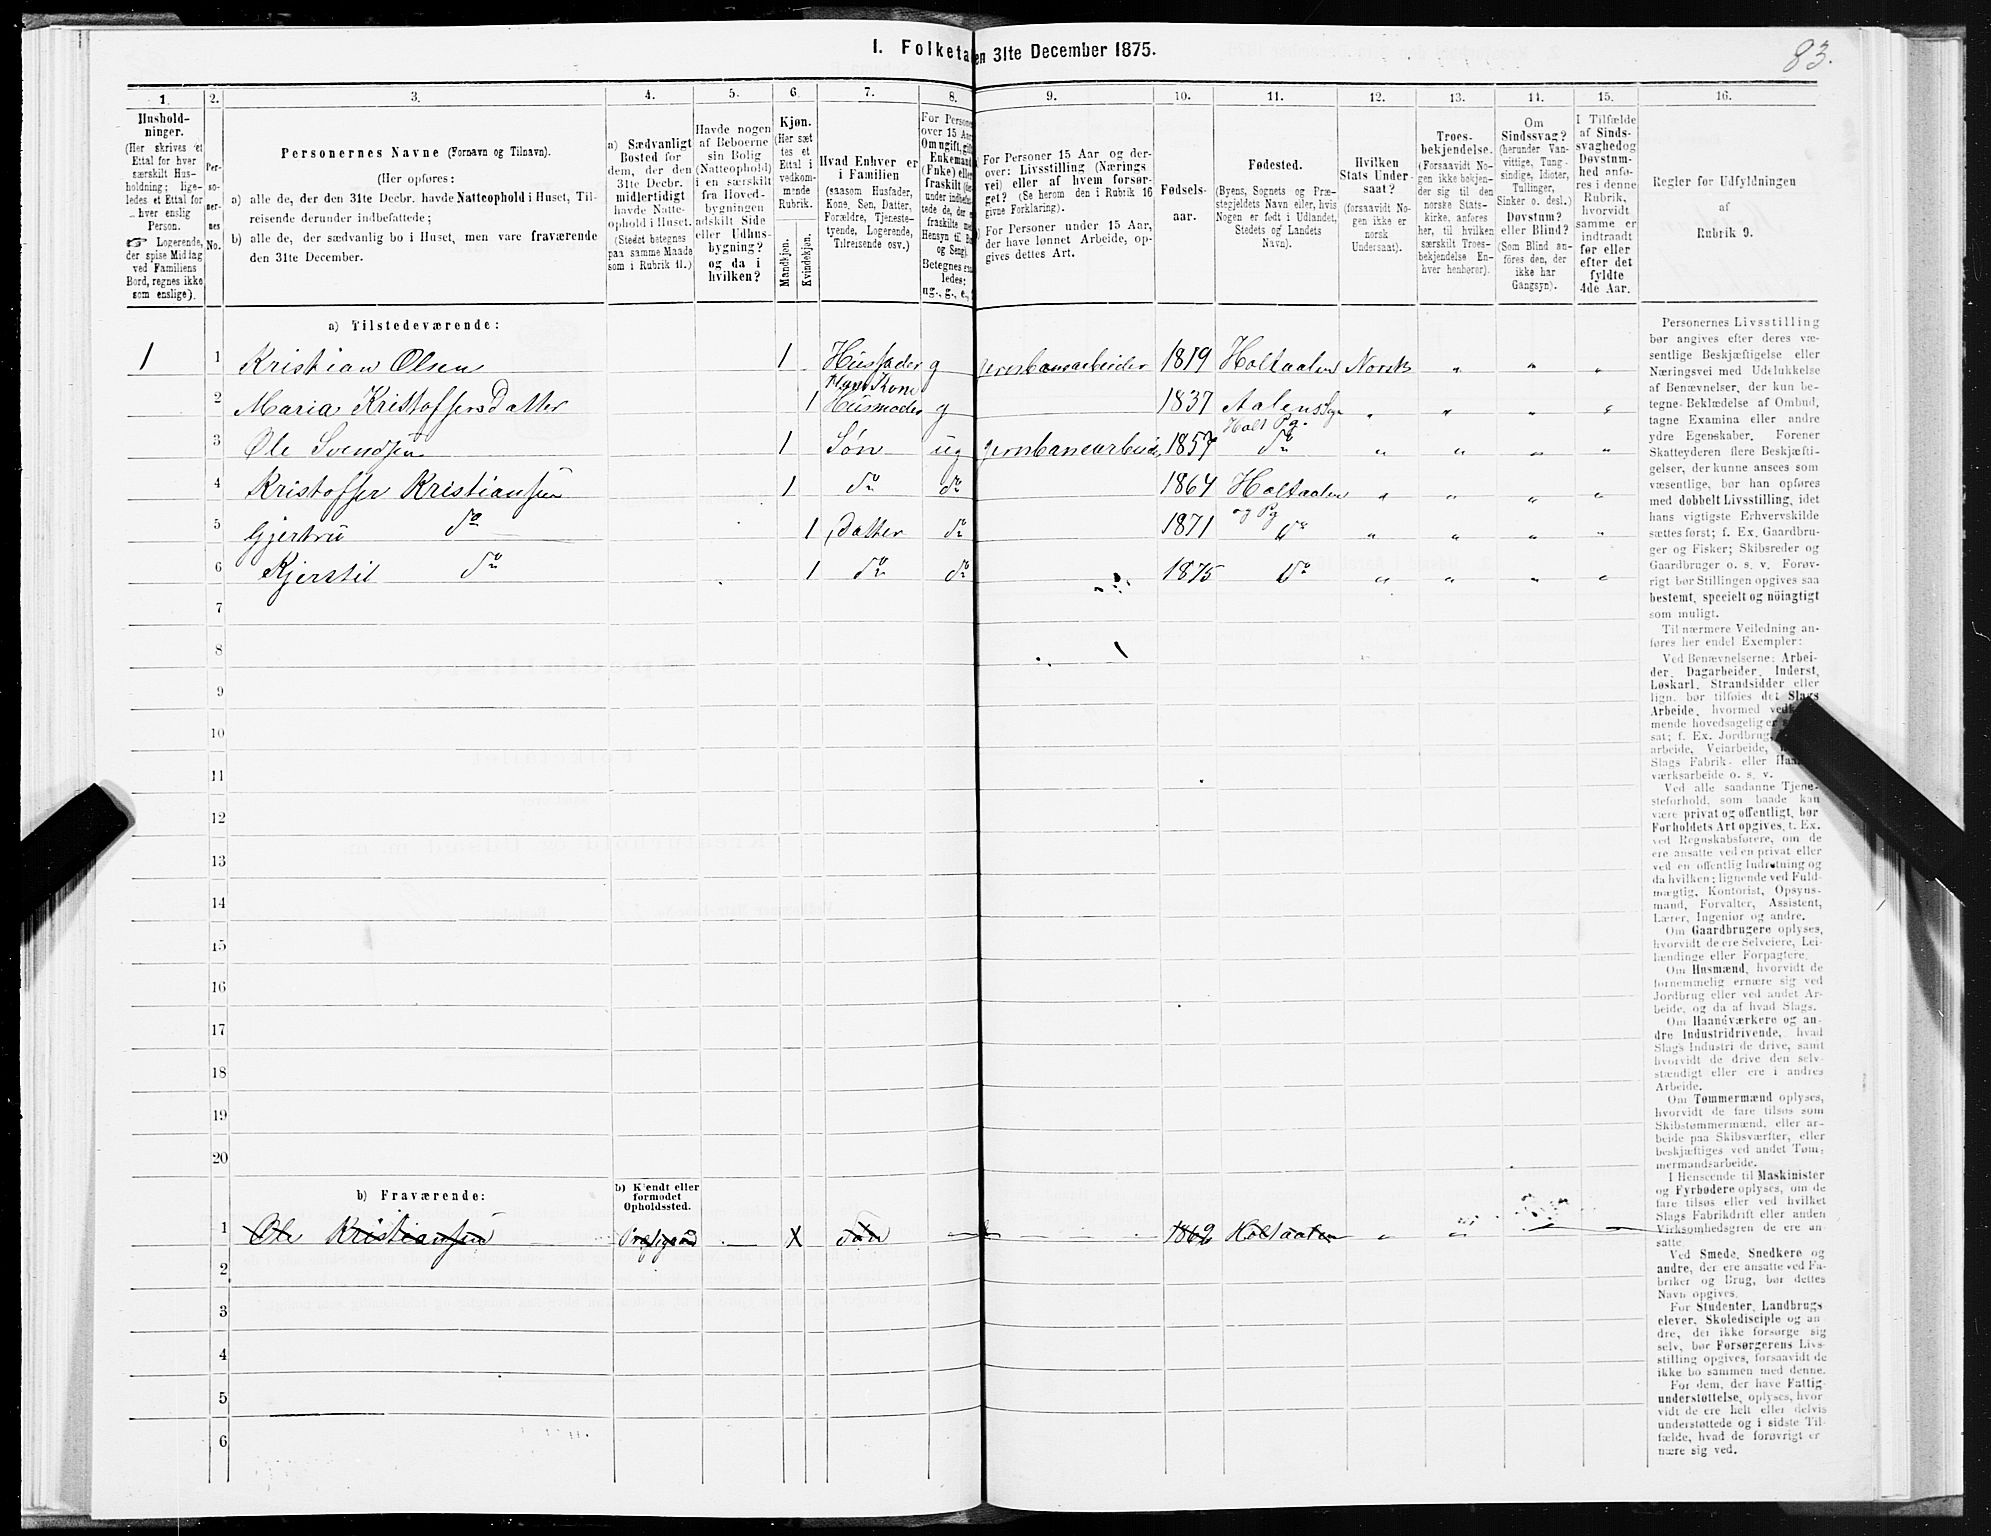 83.
I. Folketa en 31te December 1875.
1. 2. 3. 4. 5. 6. 7. 8. 9. 10. 11. 12. 13. 14. 15. 16.
Hushold-
ninger.
(Her skrives et
Ettal for hver
særskilt Hus-
holdning; lige-
ledes et Ettal for
hver enslig
Person.
☞ Logerende,
der spise Middag
ved Familiens
Bord, regnes ikke
som enslige).
Per-
so-
ner-
nes
No.
Personernes Navne (Fornavn og Tilnavn).
(Her opføres:
a) alle de, der den 31te Decbr. havde Natteophold i Huset, Til-
reisende derunder indbefattede;
b) alle de, der sædvanlig bo i Huset, men vare fraværende
den 31te December.
a) Sædvanligt
Bosted for
dem, der den
31te Decbr.
midlertidigt
havde Natte-
ophold i Huset.
(Stedet betegnes
paa samme Maade
som i Rubrik 11.)
Havde nogen
af Beboerne
sin Bolig
(Natteophold)
i en særskilt
fra Hoved-
bygningen
adskilt Side
eller Udhus-
bygning?
og da i
hvilken?
Kjøn.
(Her sæt
tes et
Ettal i
vedkom-
mende
Rubrik.
Mandkjøn.
Kvindekjøn.
Hvad Enhver er
i Familien
(saasom Husfader,
Kone, Søn, Datter,
Forældre, Tjeneste-
tyende, Logerende,
Tilreisende osv.)
For Persone
over 15 Aar
Om ugift, gift
Enkemand
(Enke) eller
fraskilt (de
under indbefat
tede de, der e
fraskilte me
Hensyn til B
og Seng).
Betegnes saa
ledes:
ug., g., e.,
For Personer 15 Aar og der-
over: Livsstilling (Nærings
vei) eller af hvem forsør-
get? (Se herom den i Rubrik 16
givne Forklaring).
For Personer under 15 Aar,
der have lønnet Arbeide, op-
gives dettes Art.
Fødsels-
aar.
Fødested.
(Byens, Sognets og Præ-
stegjeldets Navn eller, hvis
Nogen er født i Udlandet,
Stedets og Landets
Navn).
Hvilken
Stats Under-
saat?
(forsaavidt No-
gen ikke er
norsk
Undersaat).
Troes-
bekjendelse.
(Forsaavidt No-
gen ikke bekjen-
der sig til den
norske Stats-
kirke, anføres
her, til hvilken
særskilt Troes-
bekjendelse En-
hver henhører).
Om
Sindssvag?
(herunder Van-
vittige, Tung-
sindige, Idioter,
Tullinger,
Sinker o. desl.)
Døvstum?
eller Blind?
(Som Blind an-
føres den, der
ikke har
Gangsyn).
I Tilfælde
af Sinds-
svaghed og
Døvstum-
hed anfø-
res i denne
Rubrik,
hvorvidt
samme er
indtraadt
før eller
efter det
fyldte
4de Aar.
Regler for Udfyldningen
af
Rubrik 9.
a) Tilstedeværende:
1 1 Kristian Olsen 1 Husfader g jernbansarbeider 1819 Holtaalen Norsk " " "
Hans Kone
2 Maria KristoffersDatter 1 Husmoder g 1837 Aalens Sgn " " " "
Holt Pg.
3 Ole Svendsen 1 Søn ug jernbanearbeide 1857 do " " " "
4 Kristoffer Kristiansen 1 do do 1864 Holtaalen " " " "
og Pg
5 Gjertru do 1 Datter do 1871 do " " " "
6 Kjerstil do 1 do do 1875 do " " " "
7
8
9
10
11
12
13
14
15
16
17
18
19
20
b) Fraværende:
b) Kjendt eller
formodet
Opholdssted.
1 Ole Kristiansen X Søn 1862 Holtaalen " "
2
3
4
5
6
Personernes Livsstilling
bør angives efter deres væ-
sentlige Beskjæftigelse eller
Næringsvei med Udelukkelse
af Benævnelser, der kun be-
tegne Beklædelse af Ombud,
tagne Examina eller andre
ydre Egenskaber. Forener
Skatteyderen flere Beskjæfti-
gelser, der kunne ansees som
væsentlige, bør han opføres
med dobbelt Livsstilling, idet
hans vigtigste Erhvervskilde
sættes først; f. Ex. Gaardbru-
ger og Fisker; Skibsreder og
Gaardbruger o. s. v. Forøv-
rigt bør Stillingen opgives saa
bestemt, specielt og nöiagtigt
som muligt.
Til nærmere Veiledning an-
føres her endel Exempler:
Ved Benævnelserne: Arbei-
der, Dagarbeider, Inderst,
Løskarl, Strandsidder eller
lign. bør tilføies det Slags
Arbeide, hvormed ved
mende hovedsagelig er
sat; f. Ex. Jordbrug,
arbeide, Veiarbeide,
Slags Fabrik- eller
værksarbeide o. s. v.
Ved alle saadanne Tjene-
steforhold, som baade kan
være privat og offentligt, bør
Forholdets Art opgives, t. Ex.
ved Regnskabsførere, om de
ere ansatte ved en privat eller
ved en offentlig Indretning og
da hvilken; lignende ved Fuld-
mægtig, Kontorist, Opsyns-
mand, Forvalter, Assistent,
Lærer, Ingeniør og andre.
Om Gaardbrugere oplyses,
hvorvidt de ere Selveiere, Lei-
lændinge eller Forpagtere.
Om Husmænd, hvorvidt de
fornemmelig ernære sig ved
Jordbrug eller ved andet Ar-
beide, og da af hvad Slags.
Om Haandværkere og an-
dre Industridrivende, hvad
Slags Industri de drive, samt
hvorvidt de drive den selv-
stændigt eller ere i andres
Arbeide.
Om Tømmermænd oplyses,
hvorvidt de fare tilsøs som
Skibstømmermænd, eller ar-
beide paa Skibsværfter, eller
beskjæftiges ved andet Tøm-
mermandsarbeide.
I Henseende til Maskinister
og Fyrbødere oplyses, om de
fare tilsøs eller ved hvilket
Slags Fabrikdrift eller anden
Virksomhedsgren de ere an-
satte.
Ved Smede, Snedkere og
andre, der ere ansatte ved Fa-
briker og Brug, bør dettes
Navn opgives.
For Studenter, Landbrugs
elever, Skoledisciple og an-
dre, der ikke forsørge sig
selv, bør Forsørgerens Livs-
stilling opgives, forsaavidt de
ikke bo sammen med denne.
For dem, der have Fattig-
understøttelse, oplyses, hvor
vidt de ere helt eller delvis
understøttede og i sidste Til-
fælde, hvad de forøvrigt er
nære sig ved.